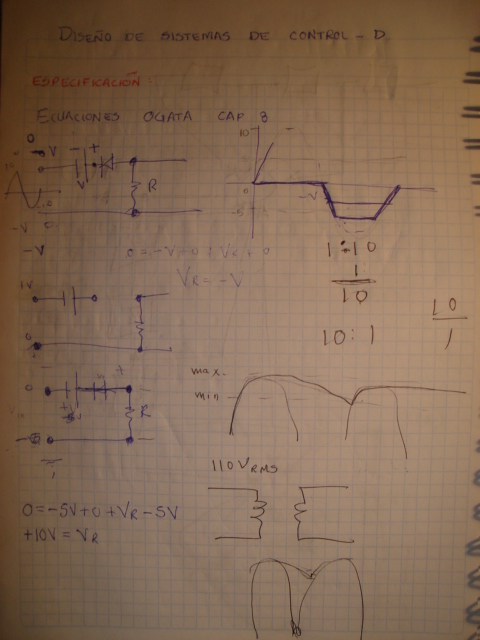 DISEÑO DE SISTEMAS DE CONTROL - D.
ESPECIFICACIÓN:
ECUACIONES OGATA CAP 8
0
V
- +
V
R
-V
0
-V
10
0
-V
-5
0 = -V + 0 + VR + 0
VR = -V
1:10
1
10
10:1
10
1
1V
0
0
+
R
max.
min
110 VRMS
0 = -5V + 0 + VR - 5V
+10V = VR